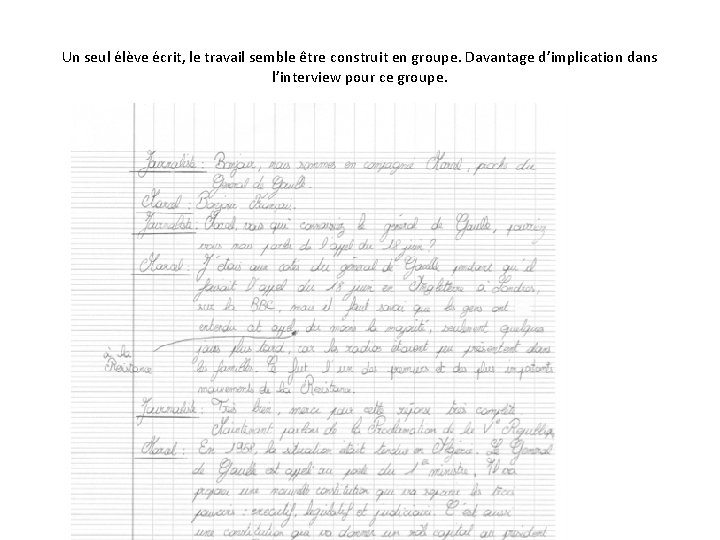 Un seul élève écrit, le travail semble être construit en groupe. Davantage d’implication dans
l’interview pour ce groupe.
Journaliste : Bonjour, nous sommes en compagnie , proche du
Général de Gaulle.
: Bonjour
Journaliste : vous qui connaissiez le général de Gaulle, pourriez
vous nous parler de l'appel du 18 juin ?
: J'étais aux cotés du général de Gaulle pendant qu'il
faisait l'appel du 18 juin en Angleterre à Londres,
sur la BBC, mais il faut savoir que les gens ont
entendu cet appel, du moins la majorité, seulement quelques
jours plus tard, car les radios étaient peu présentent dans
à la
Résistance
les familles. Ce fut l'un des premiers et des plus importants
mouvements de la Résistance.
Journaliste : Très bien, merci pour cette réponse très complète
Maintenant parlons de la Proclamation de la Ve République
: En 1958, la situation était tendue en Algérie. Le Général
de Gaulle est appelé au poste du 1er ministre. Il va
proposer une nouvelle constitution qui va séparer les trois
pouvoirs : executif, législatif et judiciaire. C'est aussi
une constitution qui va donner un rôle capital au président